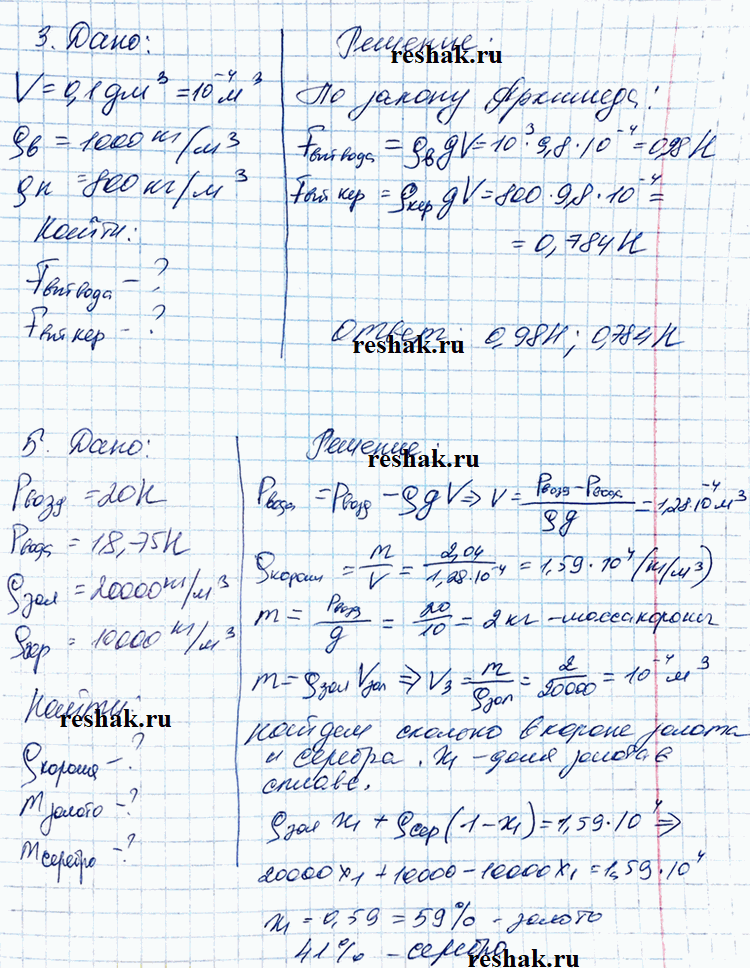 3. Дано:
V = 0,1 дм³ = 10⁻⁴ м³
ρв = 1000 кг/м³
ρк = 800 кг/м³
Найти:
Fвыт вода – ?
Fвыт кер – ?
Решение:
reshak.ru
По закону Архимеда:
Fвыт вода = ρв g V = 10³·9,8·10⁻⁴ = 0,98 Н
Fвыт кер = ρкер g V = 800·9,8·10⁻⁴ =
= 0,784 Н
Ответ: 0,98 Н; 0,784 Н
reshak.ru
5. Дано:
Pвозд = 20 Н
Pвода = 18,75 Н
ρзол = 20000 кг/м³
ρсер = 10000 кг/м³
Найти:
reshak.ru
ρкорона – ?
m золото – ?
m серебро – ?
Решение:
reshak.ru
Pвода = Pвозд – ρgV ⇒ V = (Pвозд – Pвода)/ρg = 1,28·10⁻⁴ м³
ρкороны = m/V = 2,04/1,28·10⁻⁴ = 1,59·10⁴ (кг/м³)
m = Pвозд/g = 20/10 = 2 кг – масса короны
m = ρзол Vзол ⇒ V₃ = m/ρзол = 2/20000 = 10⁻⁴ м³
найдем сколько в короне золота
и серебра. x₁ – доля золота в
сплаве.
ρзол x₁ + ρсер (1 – x₁) = 1,59·10⁴ ⇒
20000x₁ + 10000 – 10000x₁ = 1,59·10⁴
x₁ = 0,59 = 59% – золото
41% – серебро
reshak.ru